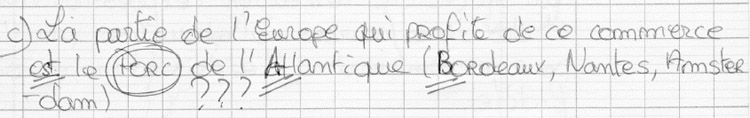 c) La partie de l'Europe qui profite de ce commerce
est le PORC de l'Atlantique (Bordeaux, Nantes, Amster
-dam) ???